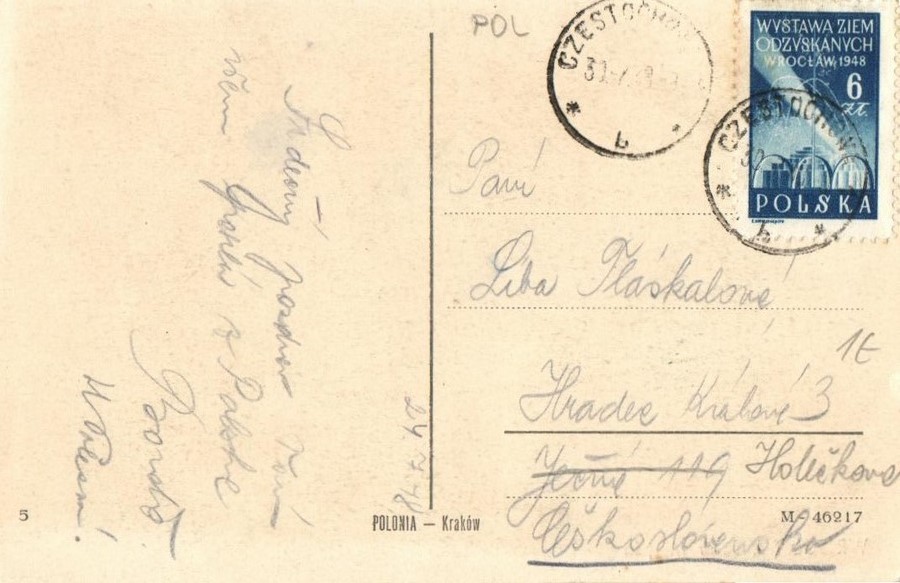 POL
CZESTOCHOWA
b
WYSTAWA ZIEM
ODZYSKANYCH
WROCŁAW 1948
6
ZŁ.
POLSKA
CZESTOCHOWA
b
Srdečný pozdrav Vám
všem posílá z Polska
24.7.48
Paní
Liba Fláskalová
1E
Hradec Králové 3
Ječná 119 Holečkova
Československo
5
POLONIA — Kraków
M- 46217